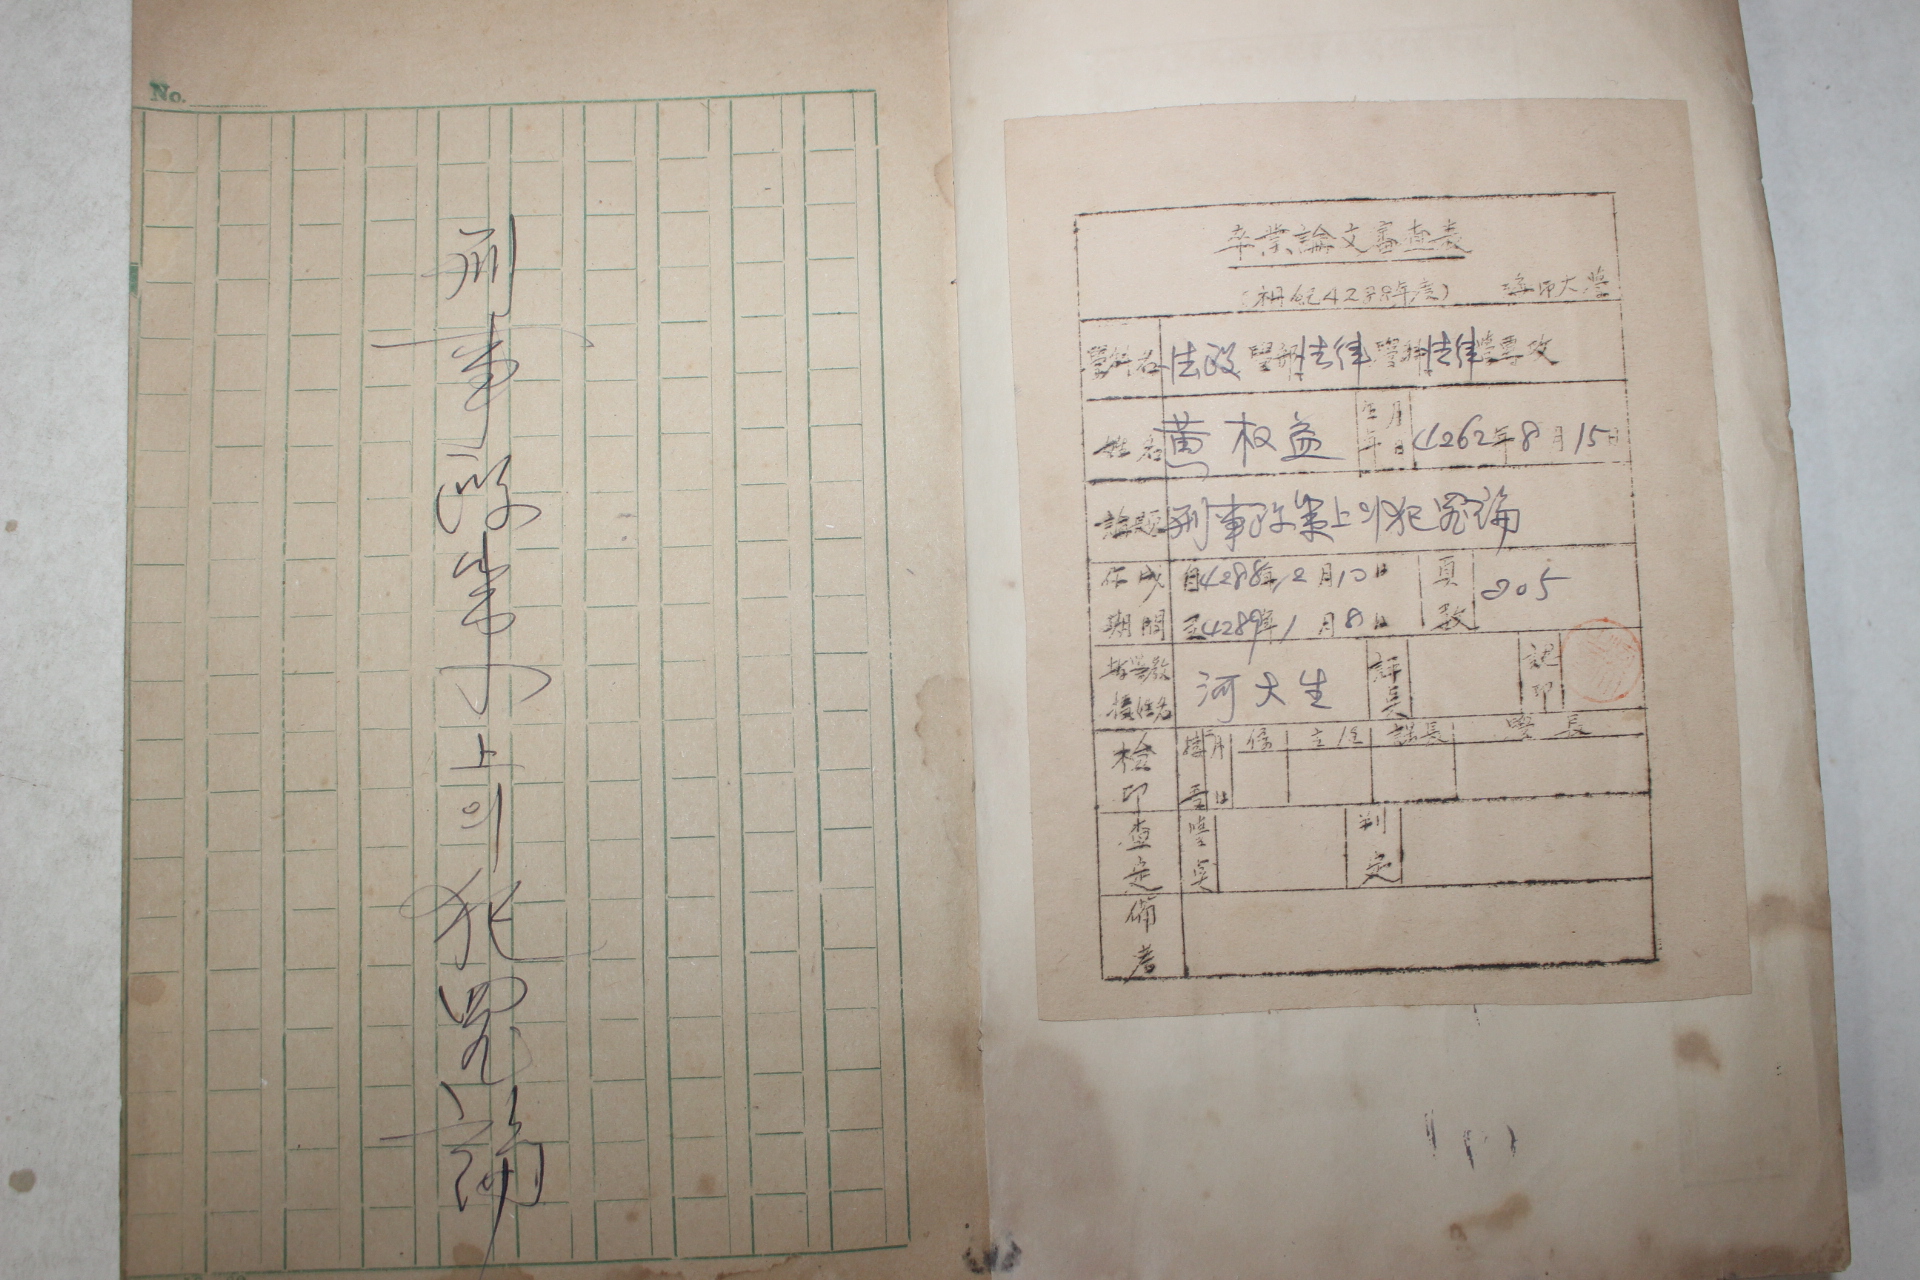 No.
刑事政策上의犯罪論
卒業論文審査表
(檀紀4288年度) 海印大學
學科名 法政 學部 法律 學科 法律 學專攻
姓名 黃权益 生年月日 4262年8月15日
論題 刑事政策上의犯罪論
作成期間 自4288年12月10日 頁数 205
至4289年1月8日
指導教授姓名 河大生 認印
檢印 月日 係 主任 課長 學長
査定 判定
備考